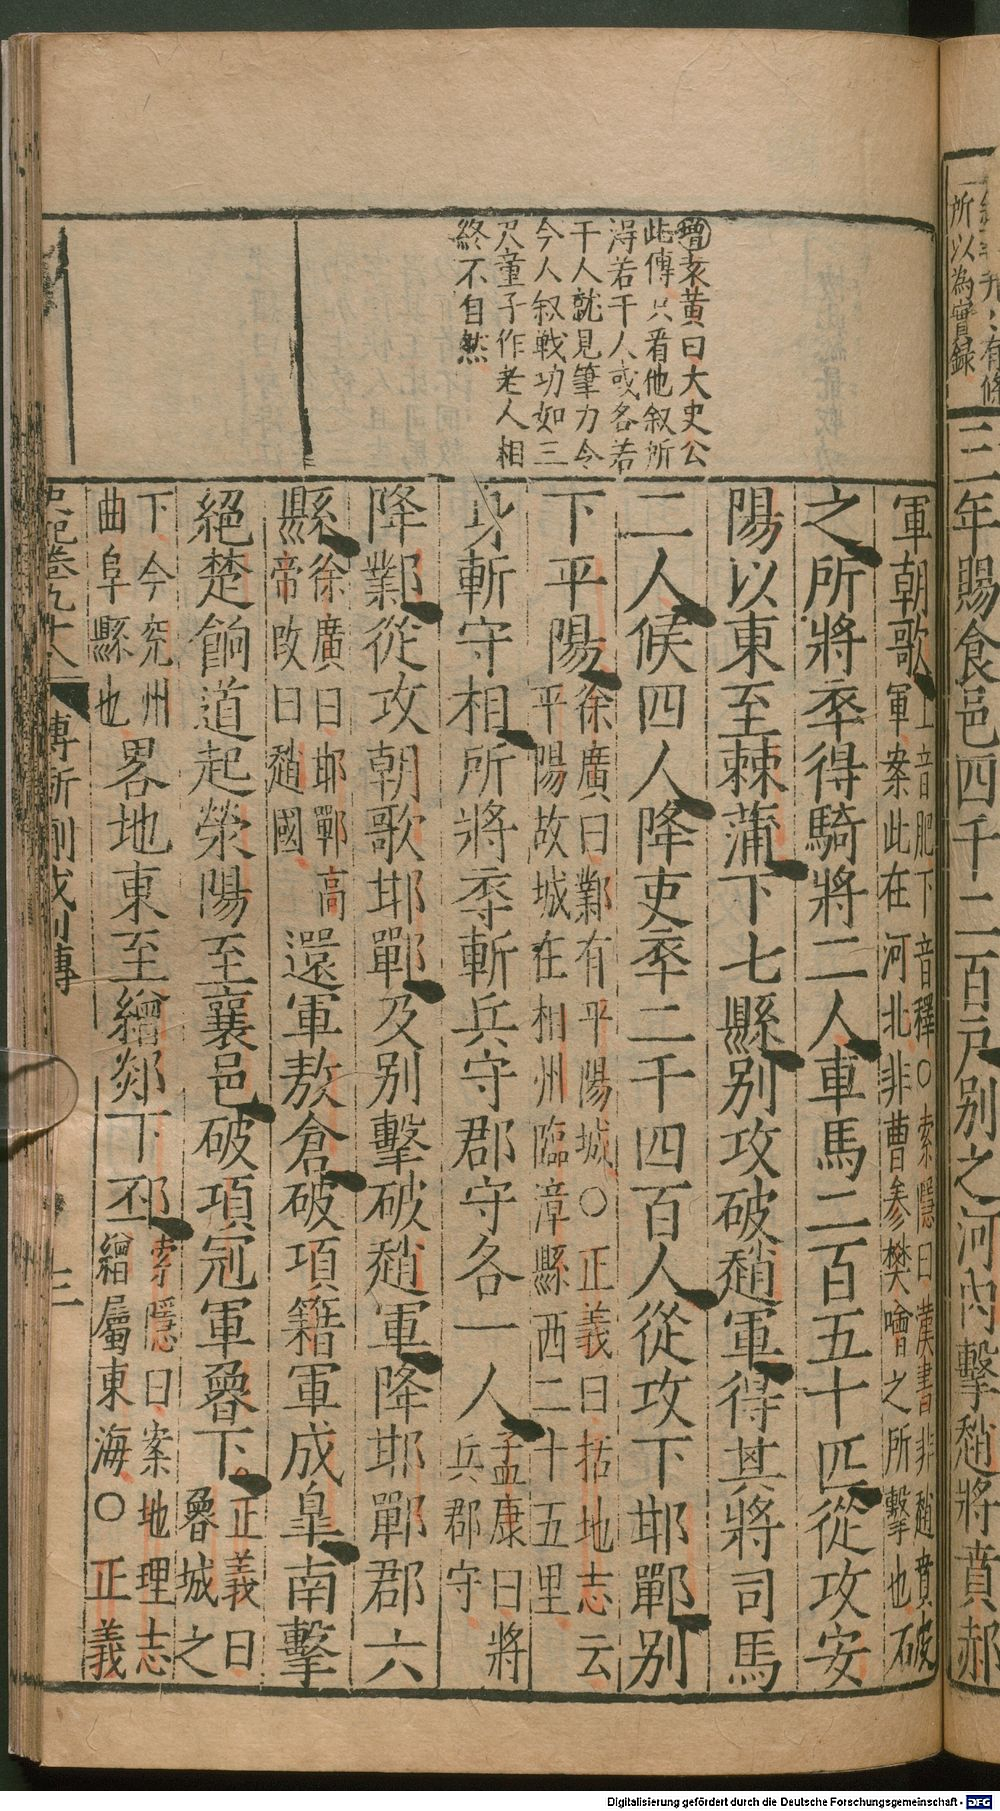 所以為實錄
三年賜食邑四千二百戶別之河內擊趙將賁郝
增 袤黄曰大史公
此傳只看他叙所
淂若干人或各若
干人就見筆力令
今人叙戰功如三
尺童子作老人相
終不自然
軍朝歌 上音肥下音釋○索隱曰漢書非趙賁破
軍案此在河北非曹參樊噲之所擊也
之所將卒得騎將二人車馬二百五十匹從攻安
陽以東至棘蒲下七縣別攻破趙軍得其將司馬
二人候四人降吏卒二千四百人從攻下邯鄲別
下平陽 徐廣曰鄴有平陽城○正義曰括地志云
平陽故城在相州臨漳縣西二十五里
身斬守相所將卒斬兵守郡守各一人 孟康曰將
兵郡守
降鄴從攻朝歌邯鄲及别擊破趙軍降邯鄲郡六
縣 徐廣曰邯鄲高
帝改曰趙國
還軍敖倉破項籍軍成皋南擊
絕楚餉道起滎陽至襄邑破項冠軍魯下 正義曰
魯城之
下今兖州
曲阜縣也
畧地東至繒郯下邳 索隱曰案地理志
繒屬東海○正義
史記卷九十八
傅靳蒯成列傳
三
Digitalisierung gefördert durch die Deutsche Forschungsgemeinschaft - DFG